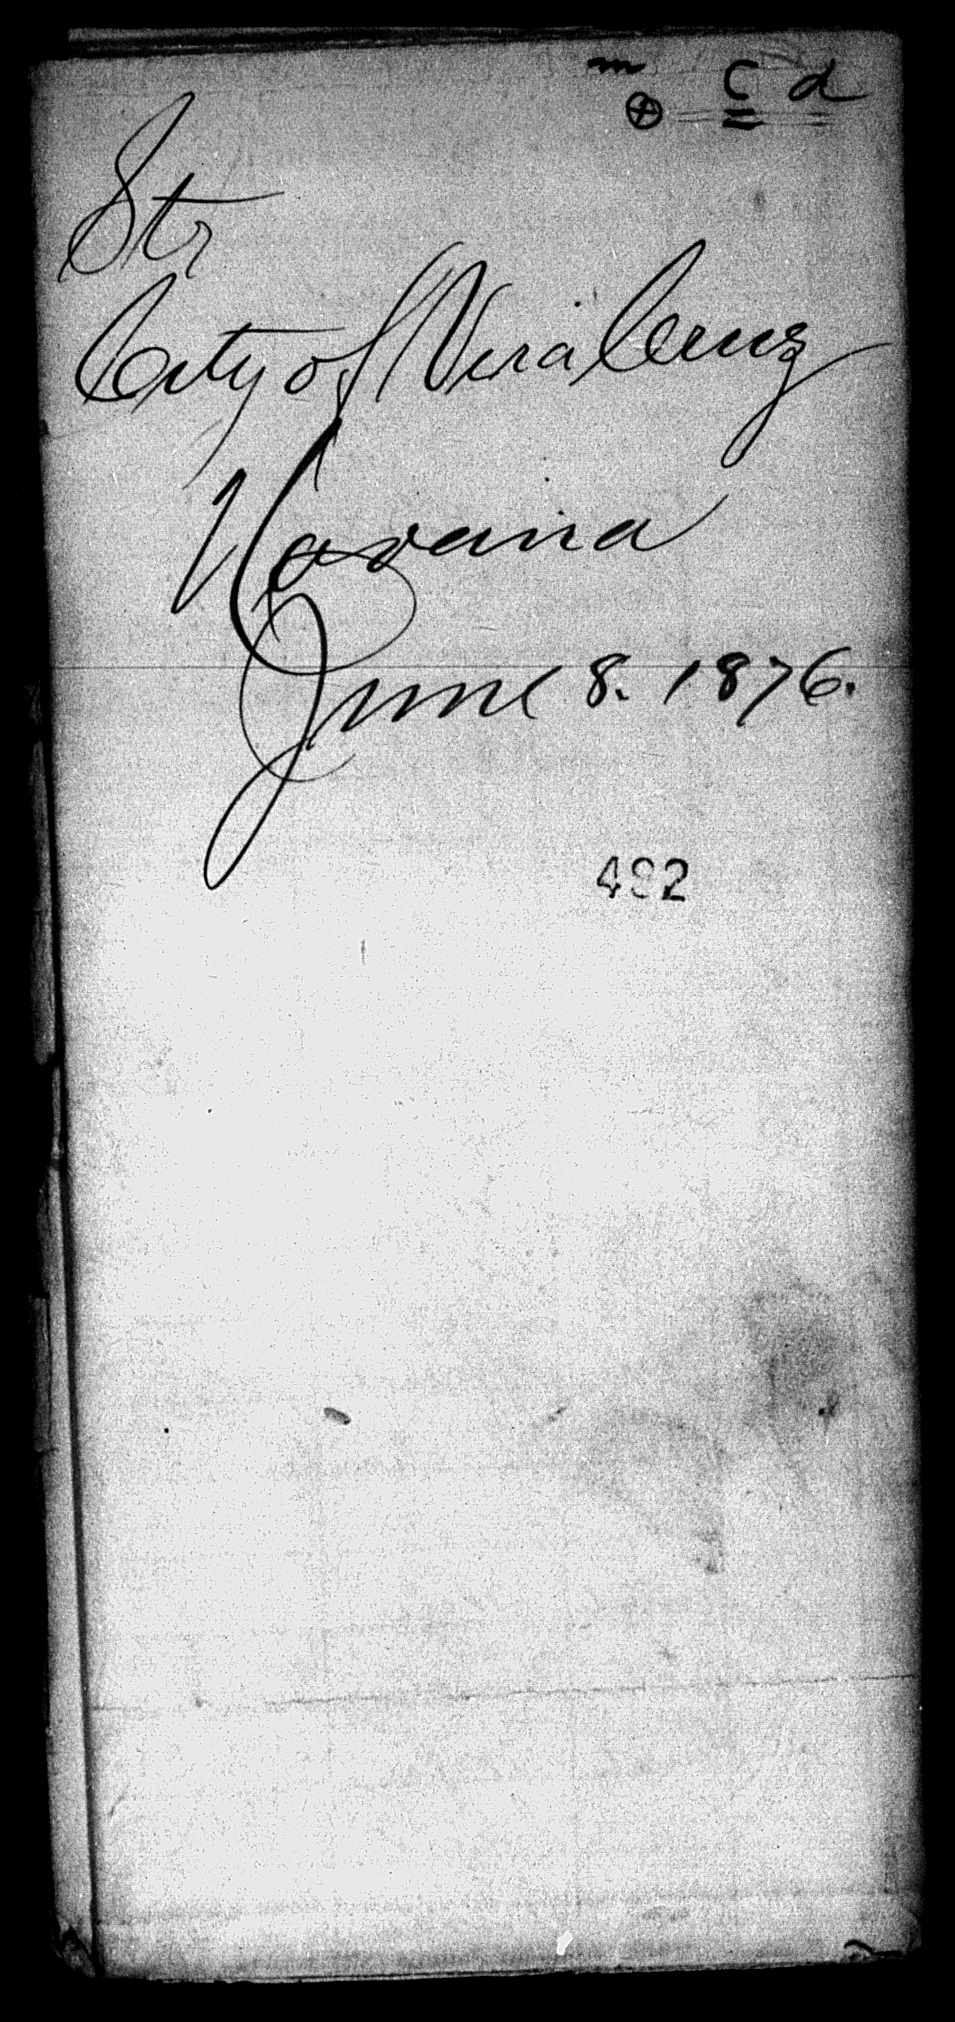 m
⊕ C d
Str
City of Vera Cruz
Havana
June 8. 1876.
492